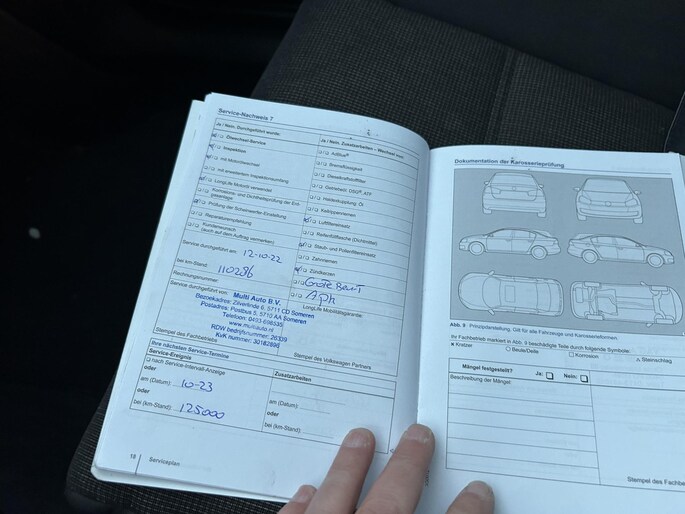 Service-Nachweis 7
Ja / Nein, Durchgeführt wurde:
Ölwechsel-Service
Inspektion
mit Motorölwechsel
mit erweitertem Inspektionsumfang
LongLife Motoröl verwendet
Prüfung der Scheinwerfer-Einstellung
Reparaturempfehlung
Kundenwunsch
(auch auf dem Auftrag vermerken)
Service durchgeführt am: 12-10-22
bei km-Stand: 110286
Rechnungsnummer:
Service durchgeführt von:
Multi Auto B.V.
Bezoekadres: Zilverlinde 6, 5711 CD Someren
Postadres: Postbus 5, 5710 AA Someren
www.multiauto.nl
Stempel des Fachbetriebs
Ja / Nein, Zusatzarbeiten – Wechsel von:
AdBlue®
Bremsflüssigkeit
Dieselkraftstofffilter
Getriebeöl: DSG®, ATF
Haldexkupplung Öl
Keilrippenriemen
Luftfiltereinsatz
Reifenfüllflasche (Dichtmittel)
Staub- und Pollenfiltereinsatz
Zahnriemen
Zündkerzen
Grote Beurt
Aph
LongLife Mobilitätsgarantie:
Stempel des Volkswagen Partners
Ihre nächsten Service-Termine
Service-Ereignis
nach Service-Intervall-Anzeige
oder
am (Datum): 10-23
oder
bei (km-Stand): 125000
Zusatzarbeiten
am (Datum):
oder
bei (km-Stand):
18
Serviceplan
Dokumentation der Karosserieprüfung
Abb. 9 Prinzipdarstellung: Gilt für alle Fahrzeuge und Karosserieformen.
Ihr Fachbetrieb markiert in Abb. 9 beschädigte Teile durch folgende Symbole:
Kratzer
Beule/Delle
Korrosion
Steinschlag
Mängel festgestellt? Ja: Nein:
Beschreibung der Mängel:
Stempel des Fachbe